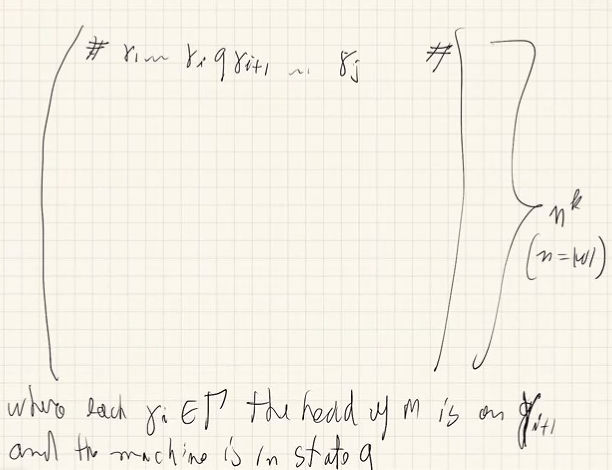 # γ₁ ... γᵢ q γᵢ₊₁ ... γⱼ #
nᵏ
(n = |w|)
where each γᵢ ∈ Γ the head of M is on γᵢ₊₁
and the machine is in state q